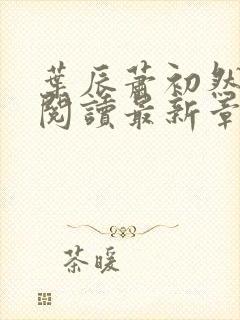 葉辰蕭初然
閱讀最新章
茶暖